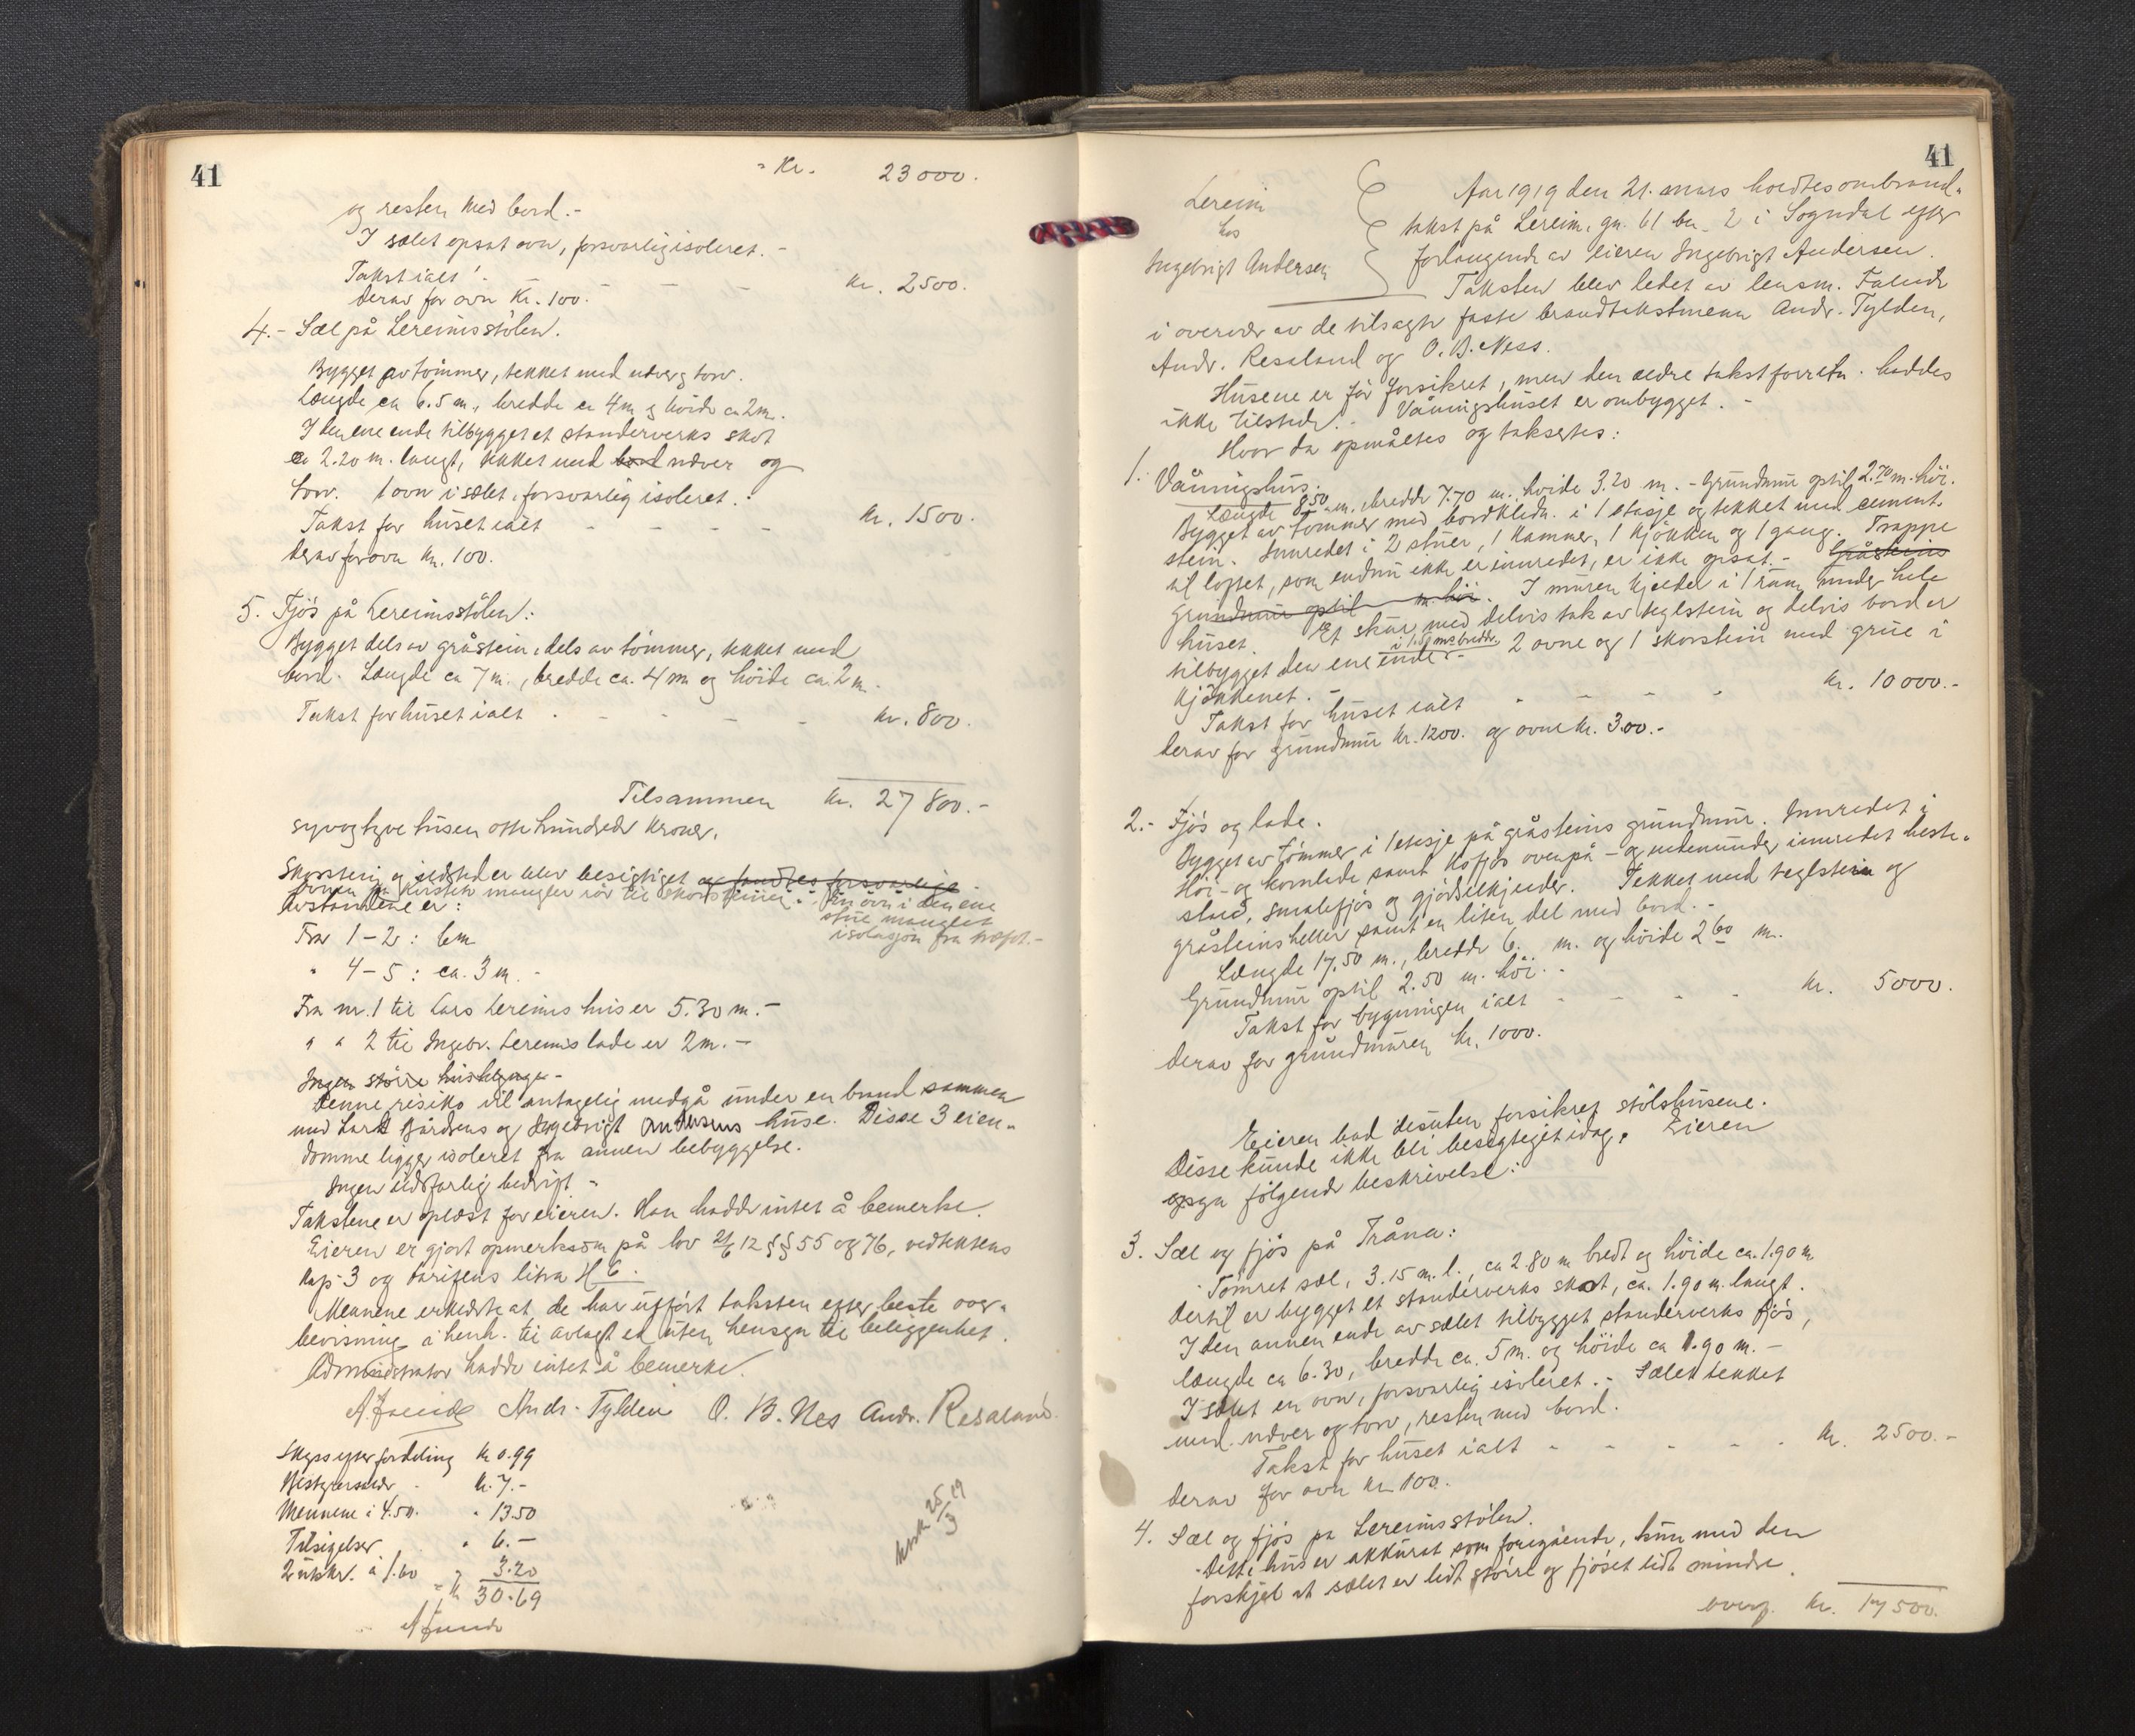 41
- Kr. 23000.
og resten med bord.-
I sælet opsat ovn, forsvarlig isoleret. -
Takst ialt - - - kr. 2500.
Derav for ovn Kr. 100.-
4.- Sæl på Lereimsstölen.
Bygget av tömmer, tekket med næver og torv.
Længde ca 6.5 m., bredde ca 4 m og höide ca 2 m.
I den ene ende tilbygget et standerverks skot
ca 2.20 m. langt, tekket med bord næver og
torv. 1 ovn i sælet, forsvarlig isoleret.
Takst for huset ialt - - - - Kr. 1500.
Derav for ovn kr. 100.
5. Fjös på Lereimsstölen:
Bygget dels av gråstein, dels av tömmer, tekket med
bord. Længde ca 7 m., bredde ca. 4 m og höide ca. 2 m.
Takst for huset ialt - - - - kr. 800.
Tilsammen kr. 27800.-
syvogtyve tusen otte hundrede kroner.
Skorstein og ildsteder blev besigtiget og fandtes forsvarlige.
mangler rör til skorsteinen. En ovn i den ene
stue mangler
isolasjon fra
Avstandene er:
Fra 1-2: 6 m
" 4-5: ca. 3 m.-
Fra nr. 1 til Lars Lereims hus er 5.30 m.-
" " 2 til Ingebr. Lereims lade er 2 m.-
Ingen större husklynge -
Denne risiko vil antagelig medgå under en brand sammen
med Lars Bårdsens og Ingebrigt Andersens huse. Disse 3 eien-
domme ligger isoleret fra annen bebyggelse.
Ingen ildsfarlig bedrift -
Takstene er oplæst for eieren. Han hadde intet å bemerke.
Eieren er gjort opmerksom på lov 21/6 12 §§ 55 og 76, vedtektens
kap. 3 og tarifens litra H 6.
Mennene erklærte at de har utfört taksten efter beste over-
bevisning i henh. til avlagt ed uten hensyn til beliggenhet.
Administrator hadde intet å bemerke.
A. Faleide Andr. Tylden O. B. Nes Andr. Resaland
Skyss efter fordeling kr 0.99
- kr. 7.-
Mennene i 4.50. " 13.50
Tilsigelser " 6.-
2 utskr. á 1.60 " 3.20
= kr 30.69
A Faleide
25/3 19
41
Lereim
hos
Ingebrigt Andersen
Aar 1919 den 21. mars holdtes ombrand-
takst på Lereim, gn. 61 bn. 2 i Sogndal efter
forlangende av eieren Ingebrigt Andersen.
Taksten blev ledet av lensm. Faleide
i overvær av de tilsagte faste brandtakstmenn Andr. Tylden,
Andr. Resaland og O. B. Ness.
Husene er för forsikret, men den ældre takstforretn. haddes
ikke tilstede. Våningshuset er ombygget. -
Hvor da opmåltes og takseres:
1. Våningshus.
Længde 8.50 m, bredde 7.70 m., höide 3.20 m. - Grundmur optil 2.70 m. höi.
Bygget av tömmer med bordklædn. i 1 etasje og tekket med cement-
stein. Innredet i 2 stuer, 1 kammer, 1 kjökken og 1 gang. Trappe
til loftet, som endnu ikke er innredet, er ikke opsat. - Gråsteins
grundmur optil m. höi. I muren kjelder i 1 rum under hele
huset. Et skur med delvis tak av teglstein og delvis bord er
tilbygget den ene ende i 1.50 m's bredde. - 2 ovne og 1 skorstein med grue i
kjökkenet. -
Takst for huset ialt - - - - kr. 10000.-
Derav for grundmur kr. 1200. og ovne kr. 300.-
2.- Fjös og lade.
Bygget av tömmer i 1 etasje på gråsteins grundmur. Innredet i
Höi- og kornlade samt kofjös ovenpå - og nedenunder innredet heste-
stald, smalefjös og gjödselkjelder. Tekket med teglstein og
gråsteinsheller samt en liten del med bord. -
Længde 17.50 m., bredde 6. m. og höide 2.60 m.
Grundmur optil 2.50 m. höi. -
Takst for bygningen ialt - - - - kr. 5000.
Derav for grundmuren kr. 1000.
Eieren bad desuten forsikret stölshusene.
Disse kunde ikke bli besigtiget idag. Eieren
opga fölgende beskrivelse:
3. Sæl og fjös på Tråna:
Tömret sæl, 3.15 m. l., ca 2.80 m bredt og höide ca. 1.90 m
Dertil er bygget et standerverks skot, ca. 1.90 m. langt.
I den annen ende av sælet tilbygget standerverks fjös,
længde ca 6.30, bredde ca. 5 m. og höide ca 1.90 m. -
I sælet en ovn, forsvarlig isoleret. - Sælet tekket
med næver og torv, resten med bord.
Takst for huset ialt - - - - - kr. 2500.-
Derav for ovn kr 100.
4. Sæl og fjös på Lereimsstölen.
Dette hus er akkurat som foregående, kun med den
forskjel at sælet er lidt större og fjöset lidt mindre.
overf. kr. 17500.